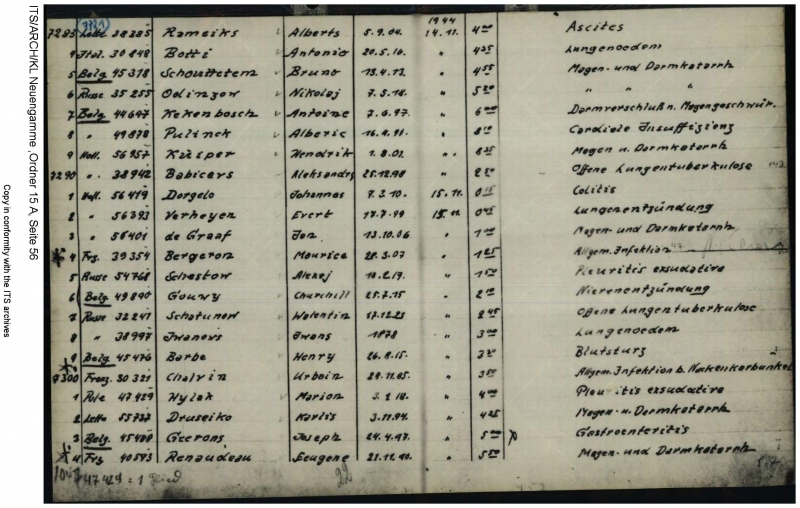 ITS/ARCH/KL Neuengamme, Ordner 15 A, Seite 56
Copy in conformity with the ITS archives
1944
7283 Lette 38385 Rameiks Alberts 5.9.04. 14.11. 4 00 Ascites
4 Ital. 30848 Botti Antonio 20.5.10. " 4 35 Lungenoedem
5 Belg 45318 Schouttetem Bruno 13.4.12. " 4 55 Magen- und Darmkatarrh
6 Russe 35255 Odinzow Nikolaj 7.5.18. " 5 20 " " "
7 Belg 44647 Kekenbosch Antoine 7.6.97. " 6 00 Darmverschluß n. Magengeschwür.
8 " 49878 Pulinck Alberic 16.4.91. " 8 10 Cardiale Insuffizienz
9 Holl. 56957 Küsper Hendrik 1.8.02. " 8 25 Magen u. Darmkatarrh
7290 " 38942 Babicers Aleksandrs 25.12.98 " 2 30 Offene Lungentuberkulose
1 Holl. 56419 Dorgelo Johannes 7.3.10. 15.11. 0 15 Colitis
2 " 56393 Verheyen Evert 17.7.99 15.11. 0 45 Lungenentzündung
3 " 56401 de Graaf Jan 13.10.06. " 1 00 Magen- und Darmkatarrh
4 Frz. 39354 Bergeron Maurice 28.3.07 " 1 25 Allgem. Infektion
5 Russe 54768 Schestow Alexej 10.2.19. " 1 50 Pleuritis exsudativa
6 Belg 49890 Gouwy Churchill 25.7.15 " 2 10 Nierenentzündung
7 Russe 32241 Schatunow Walentin 17.12.25 " 2 45 Offene Lungentuberkulose
8 " 38997 Iwanovs Iwans 1878 " 3 00 Lungenoedem
9 Belg. 45476 Barbe Henry 26.8.15. " 3 20 Blutsturz
7300 Franz. 30321 Chalvin Urbain 28.11.05. " 3 50 Allgem. Infektion b. Nackenkarbunkel
1 Pole 47429 Hylak Marion 3.2.18. " 4 00 Pleuritis exsudativa
2 Lette 55737 Druseiko Karlis 3.11.94. " 4 25 Magen- u. Darmkatarrh
3 Belg. 45488 Geerons Joseph 24.4.97. " 5 00 Gastroenteritis
4 Frz 40593 Renaudeau Eeugene 21.11.10. " 5 50 Magen- und Darmkatarrh
47429 = 1
22